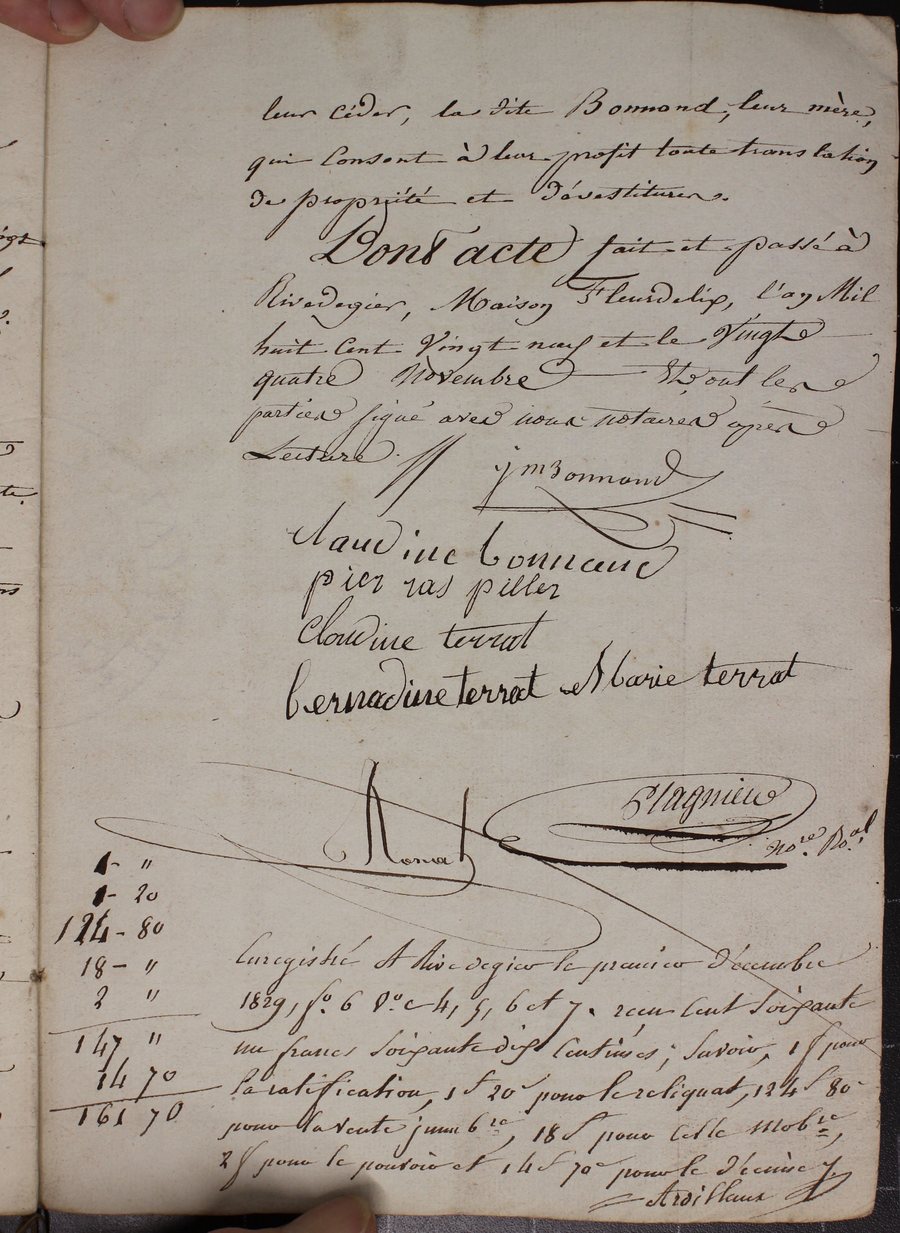 leur céder, la dite Bonnond, leur mère,
qui consent à leur profit toute translation
de propriété et dévestiture.
Dont acte fait et passé à
Rivedegier, Maison Fleurdelix, l'an Mil
huit Cent Vingt neuf et le Vingt
quatre Novembre Et ont les
parties signé avec nous notaires après
Lecture.
jm Bonnand
claudine bonnand
pier ras piller
Cloudine terrat
bernadine terrat Marie terrat
Plagnieu
Nore. Roal.
1 - "
1 - 20
124 - 80
18 - "
2 "
147 "
14 70
161 70
Enregistré A Rivedegier le premier décembre
1829, fo. 6 Vo. c 4, 5, 6 et 7. reçu Cent Soixante
un francs Soixante dix Centimes; Savoir, 1 f pour
la ratification, 1 f 20 c pour le reliquat, 124 f 80 c
pour la vente immbre, 18 f pour celle mobre,
2 f pour le pouvoir et 14 f 70 c pour le décime
Ardillaux